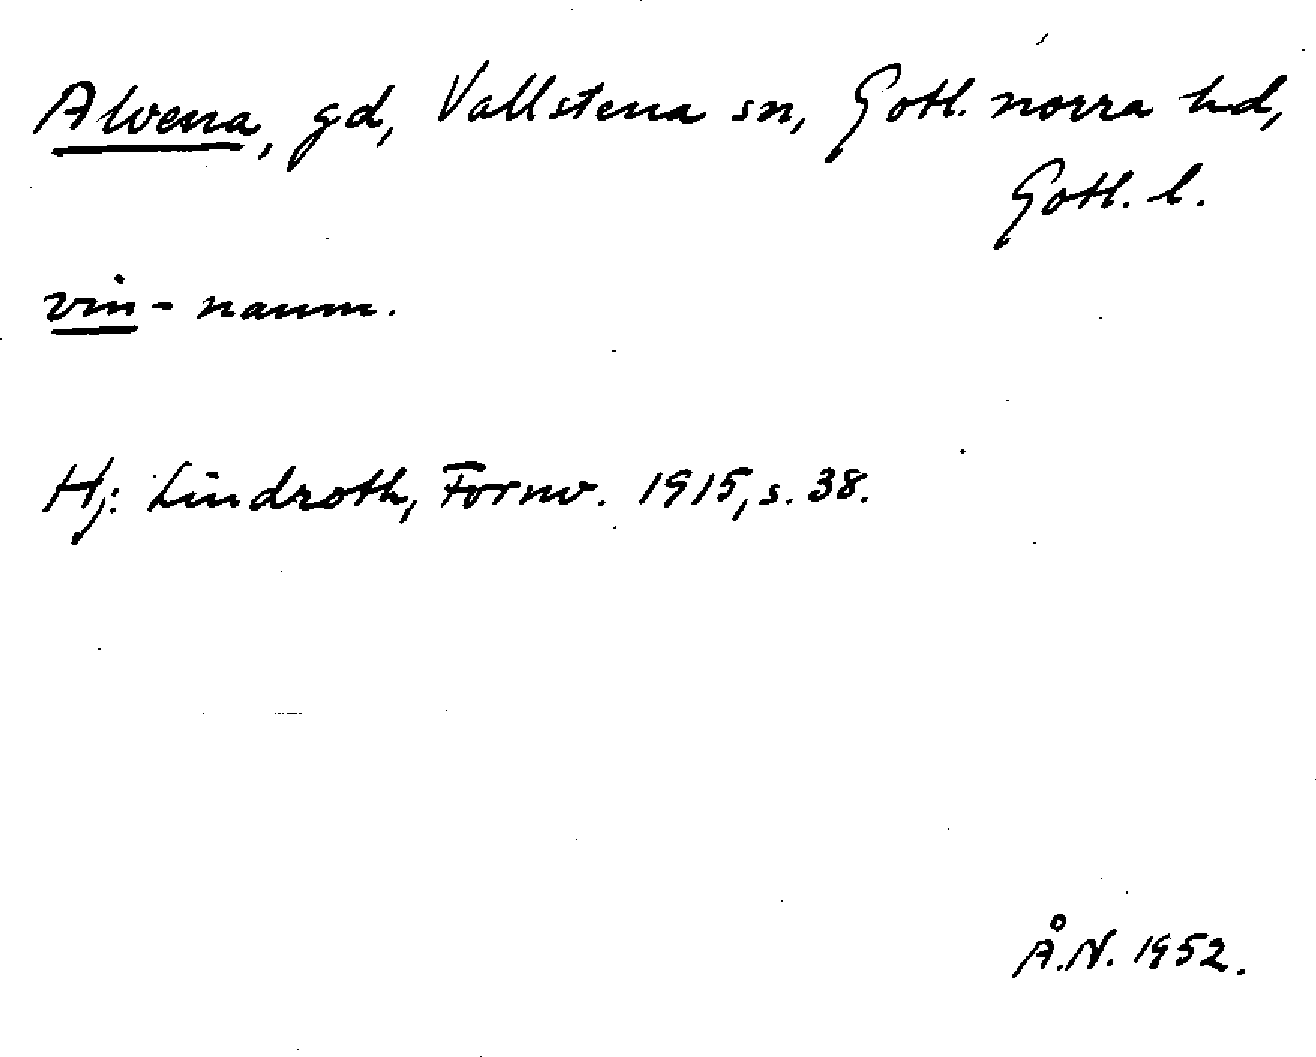 Alvena, gd, Vallstena sn, Gotl. norra hd,
Gotl. l.
vin-namn.
Hj. Lindroth, Fornv. 1915, s. 38.
Å.N. 1952.